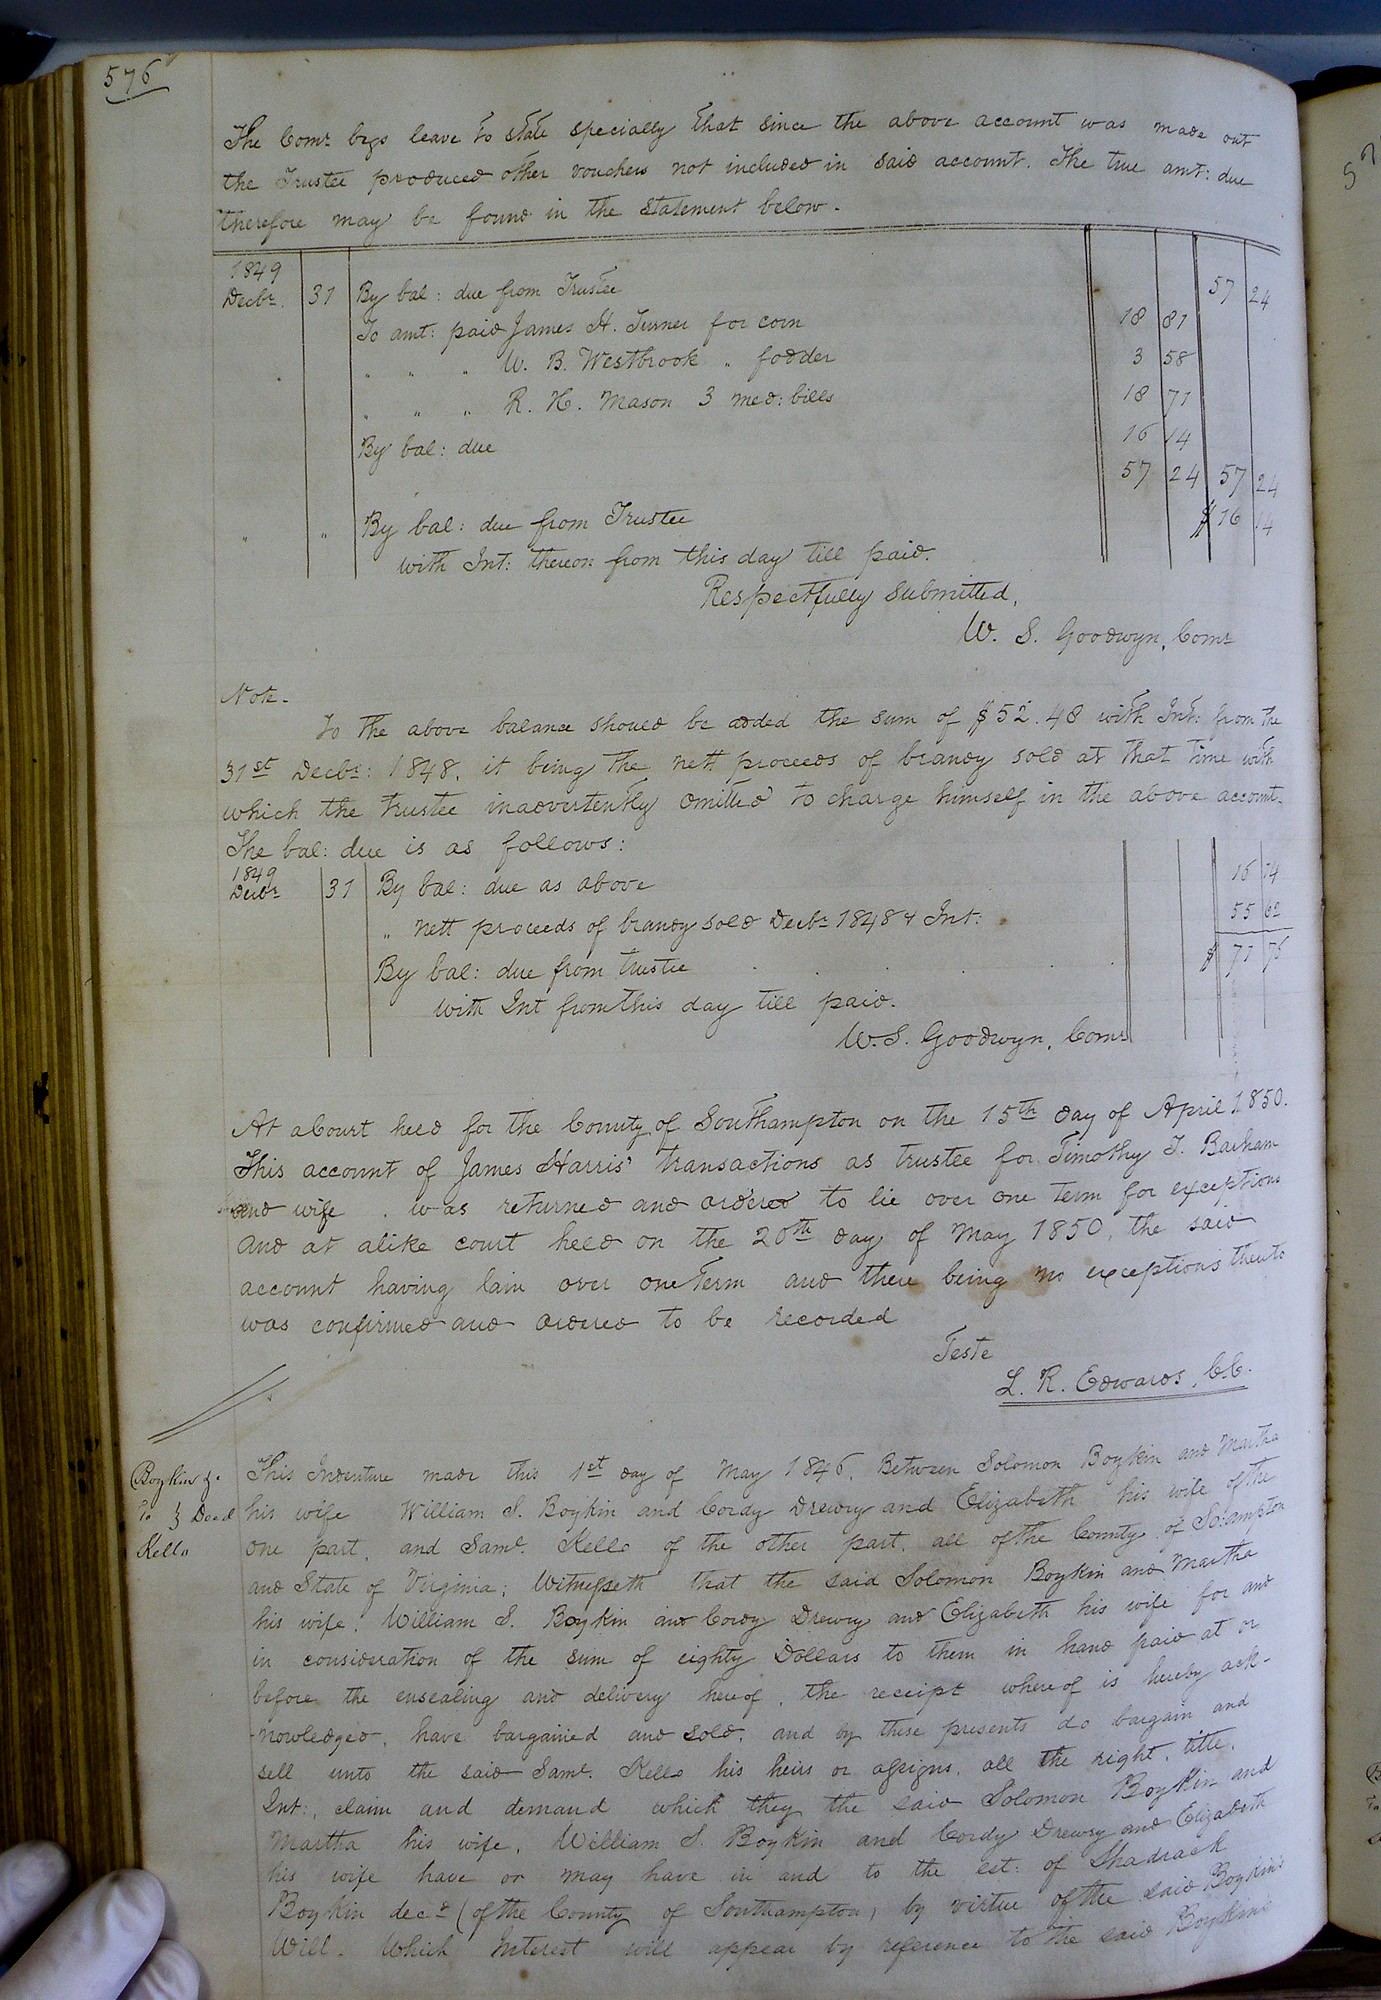 576
The Comr. begs leave to state specially that since the above account was made out
the Trustee produced other vouchers not included in said account. The true amt: due
therefore may be found in the statement below.
1849
Decbr. 31 By bal: due from Trustee 57 24
To amt: paid James H. Turner for corn 18 81
" " " W. B. Westbrook " fodder 3 58
" " " R. H. Mason 3 med: bills 18 71
By bal: due 16 14
57 24 57 24
" " By bal: due from Trustee $ 16 14
with Int: thereon from this day till paid.
Respectfully submitted,
W. S. Goodwyn, Comr
Note.
To the above balance should be added the sum of $52.48 with Int: from the
31st Decbr: 1848, it being the nett proceeds of brandy sold at that time with
which the trustee inadvertently omitted to charge himself in the above account.
The bal: due is as follows:
1849
Decbr 31 By bal: due as above 16 14
" nett proceeds of brandy sold Decbr 1848 & Int: 55 62
By bal: due from trustee $ 71 76
with Int from this day till paid.
W. S. Goodwyn, Comr
At a Court held for the County of Southampton on the 15th day of April 1850.
This account of James Harris' transactions as trustee for Timothy T. Barham
and wife. was returned and ordered to lie over one term for exceptions
and at alike court held on the 20th day of May 1850, the said
account having lain over one Term and there being no exceptions thereto
was confirmed and ordered to be recorded
Teste
L. R. Edwards, C.C.
Boykin &c
To } Deed
Kello
This Indenture made this 1st day of May 1846, Between Solomon Boykin and Martha
his wife William S. Boykin and Cordy Drewry and Elizabeth his wife of the
one part, and Saml. Kello of the other part, all of the County of So:ampton
and State of Virginia; Witnesseth that the said Solomon Boykin and Martha
his wife, William S. Boykin and Cordy Drewry and Elizabeth his wife for and
in consideration of the sum of eighty Dollars to them in hand paid at or
before the ensealing and delivery hereof, the receipt whereof is hereby ack-
-nowledged, have bargained and sold, and by these presents do bargain and
sell unto the said Saml. Kello his heirs or assigns, all the right, title,
Int:, claim and demand which they the said Solomon Boykin and
Martha his wife, William S. Boykin and Cordy Drewry and Elizabeth
his wife have or may have in and to the est: of Shadrack
Boykin decd (of the County of Southampton) by virtue of the said Boykin's
Will. Which Interest will appear by reference to the said Boykin's